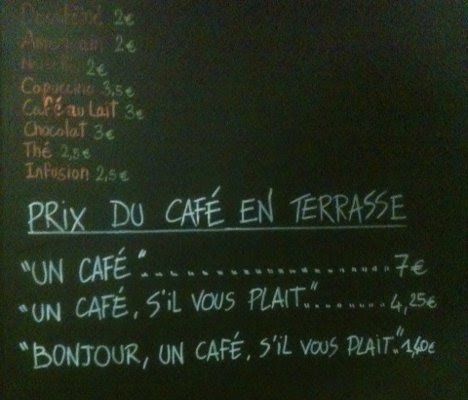 Décaféiné 2€
Américain 2€
2€
Capuccino 3,5€
Café au Lait 3€
Chocolat 3€
Thé 2,5€
Infusion 2,5€
PRIX DU CAFÉ EN TERRASSE
"UN CAFÉ"................................7€
"UN CAFÉ, S'IL VOUS PLAIT"..........4,25€
"BONJOUR, UN CAFÉ, S'IL VOUS PLAIT".. 1,40€